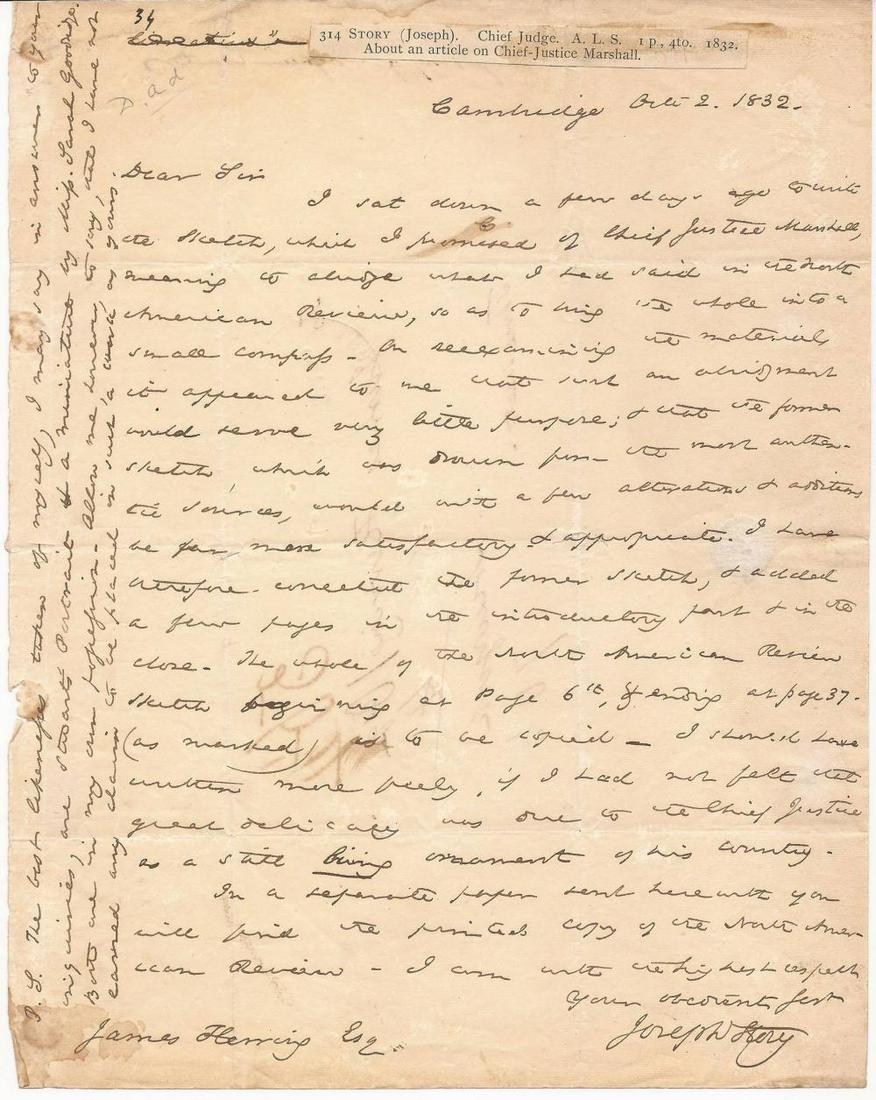 34
314 STORY (Joseph). Chief Judge. A. L. S. 1 p, 4to. 1832.
About an article on Chief-Justice Marshall.
Cambridge Oct 2. 1832.
Dear Sir
I sat down a few days ago to write
the Sketch, which I promised of Chief Justice Marshall,
meaning to abridge what I had said in the North
American Review, so as to bring the whole into a
small compass - On reexamining the materials
it appeared to me that such an abridgment
would serve very little purpose; & that the former
sketch which was drawn from the most authen-
tic sources, would with a few alterations & additions
be far more satisfactory & appropriate. I have
therefore corrected the former sketch, & added
a few pages in the introductory part & in the
close - The whole of the North American Review
Sketch beginning at page 6th, & ending at page 37.
(as marked) is to be copied - I should have
written more freely, if I had not felt that
great delicacy was due to the Chief Justice
as a still living ornament of his country -
In a separate paper sent herewith you
will find the printed copy of the North Amer-
ican Review - I am with the highest respect
Your obedient Servt
Joseph Story
James Herring Esq.
P.S. The best likenesses taken of myself, I may say in answer to your
inquiries, are Stuarts Portrait & a miniature by Miss. Sarah Goodridge.
Both are in my own possession - Allow me, however, to say, that I have not
earned any claim to be placed in such a work, as yours.